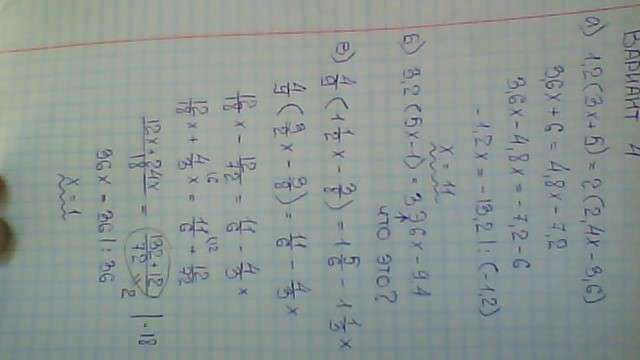 ВАРИАНТ 4
а) 1,2(3x+5) = 2(2,4x-3,6)
3,6x+6 = 4,8x-7,2
3,6x-4,8x = -7,2-6
-1,2x = -13,2 |:(-1,2)
x = 11
б) 3,2(5x-1) = 3,6x-9,4
что это?
в) 4/9 (1 1/2 x - 3/8) = 1 5/6 - 1 1/3 x
4/9 (3/2 x - 3/8) = 11/6 - 4/3 x
12/18 x - 12/72 = 11/6 - 4/3 x
12/18 x + 4/3 x = 11/6 + 12/72
12x+24x/18 = 132+12/72 |·18
36x = 36 |:36
x = 1